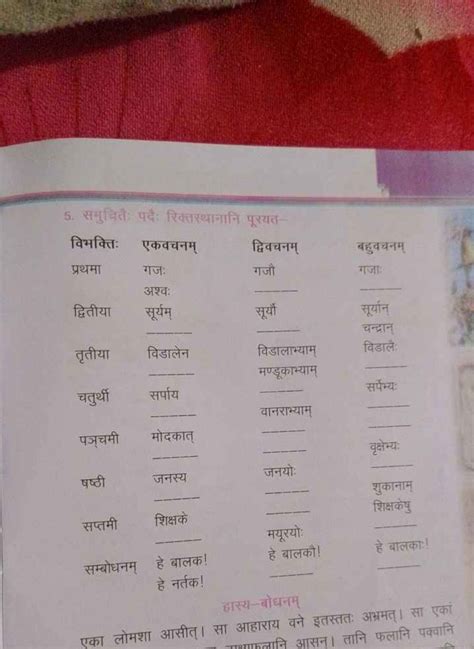 5. समुचितैः पदैः रिक्तस्थानानि पूरयत–
विभक्तिः एकवचनम् द्विवचनम् बहुवचनम्
प्रथमा गजः गजौ गजाः
अश्वः _____ _____
द्वितीया सूर्यम् सूर्यौ सूर्यान्
_____ _____ चन्द्रान्
तृतीया विडालेन विडालाभ्याम् विडालैः
_____ मण्डूकाभ्याम् _____
चतुर्थी सर्पाय _____ सर्पेभ्यः
_____ वानराभ्याम् _____
पञ्चमी मोदकात् _____ _____
_____ _____ वृक्षेभ्यः
षष्ठी जनस्य जनयोः _____
_____ _____ शुकानाम्
सप्तमी शिक्षके _____ शिक्षकेषु
_____ मयूरयोः _____
सम्बोधनम् हे बालक! हे बालकौ! हे बालकाः!
हे नर्तक! _____ _____
हास्य–बोधनम्
एका लोमशा आसीत्। सा आहाराय वने इतस्ततः अभ्रमत्। सा एकां
आसन्। तानि फलानि पक्वानि